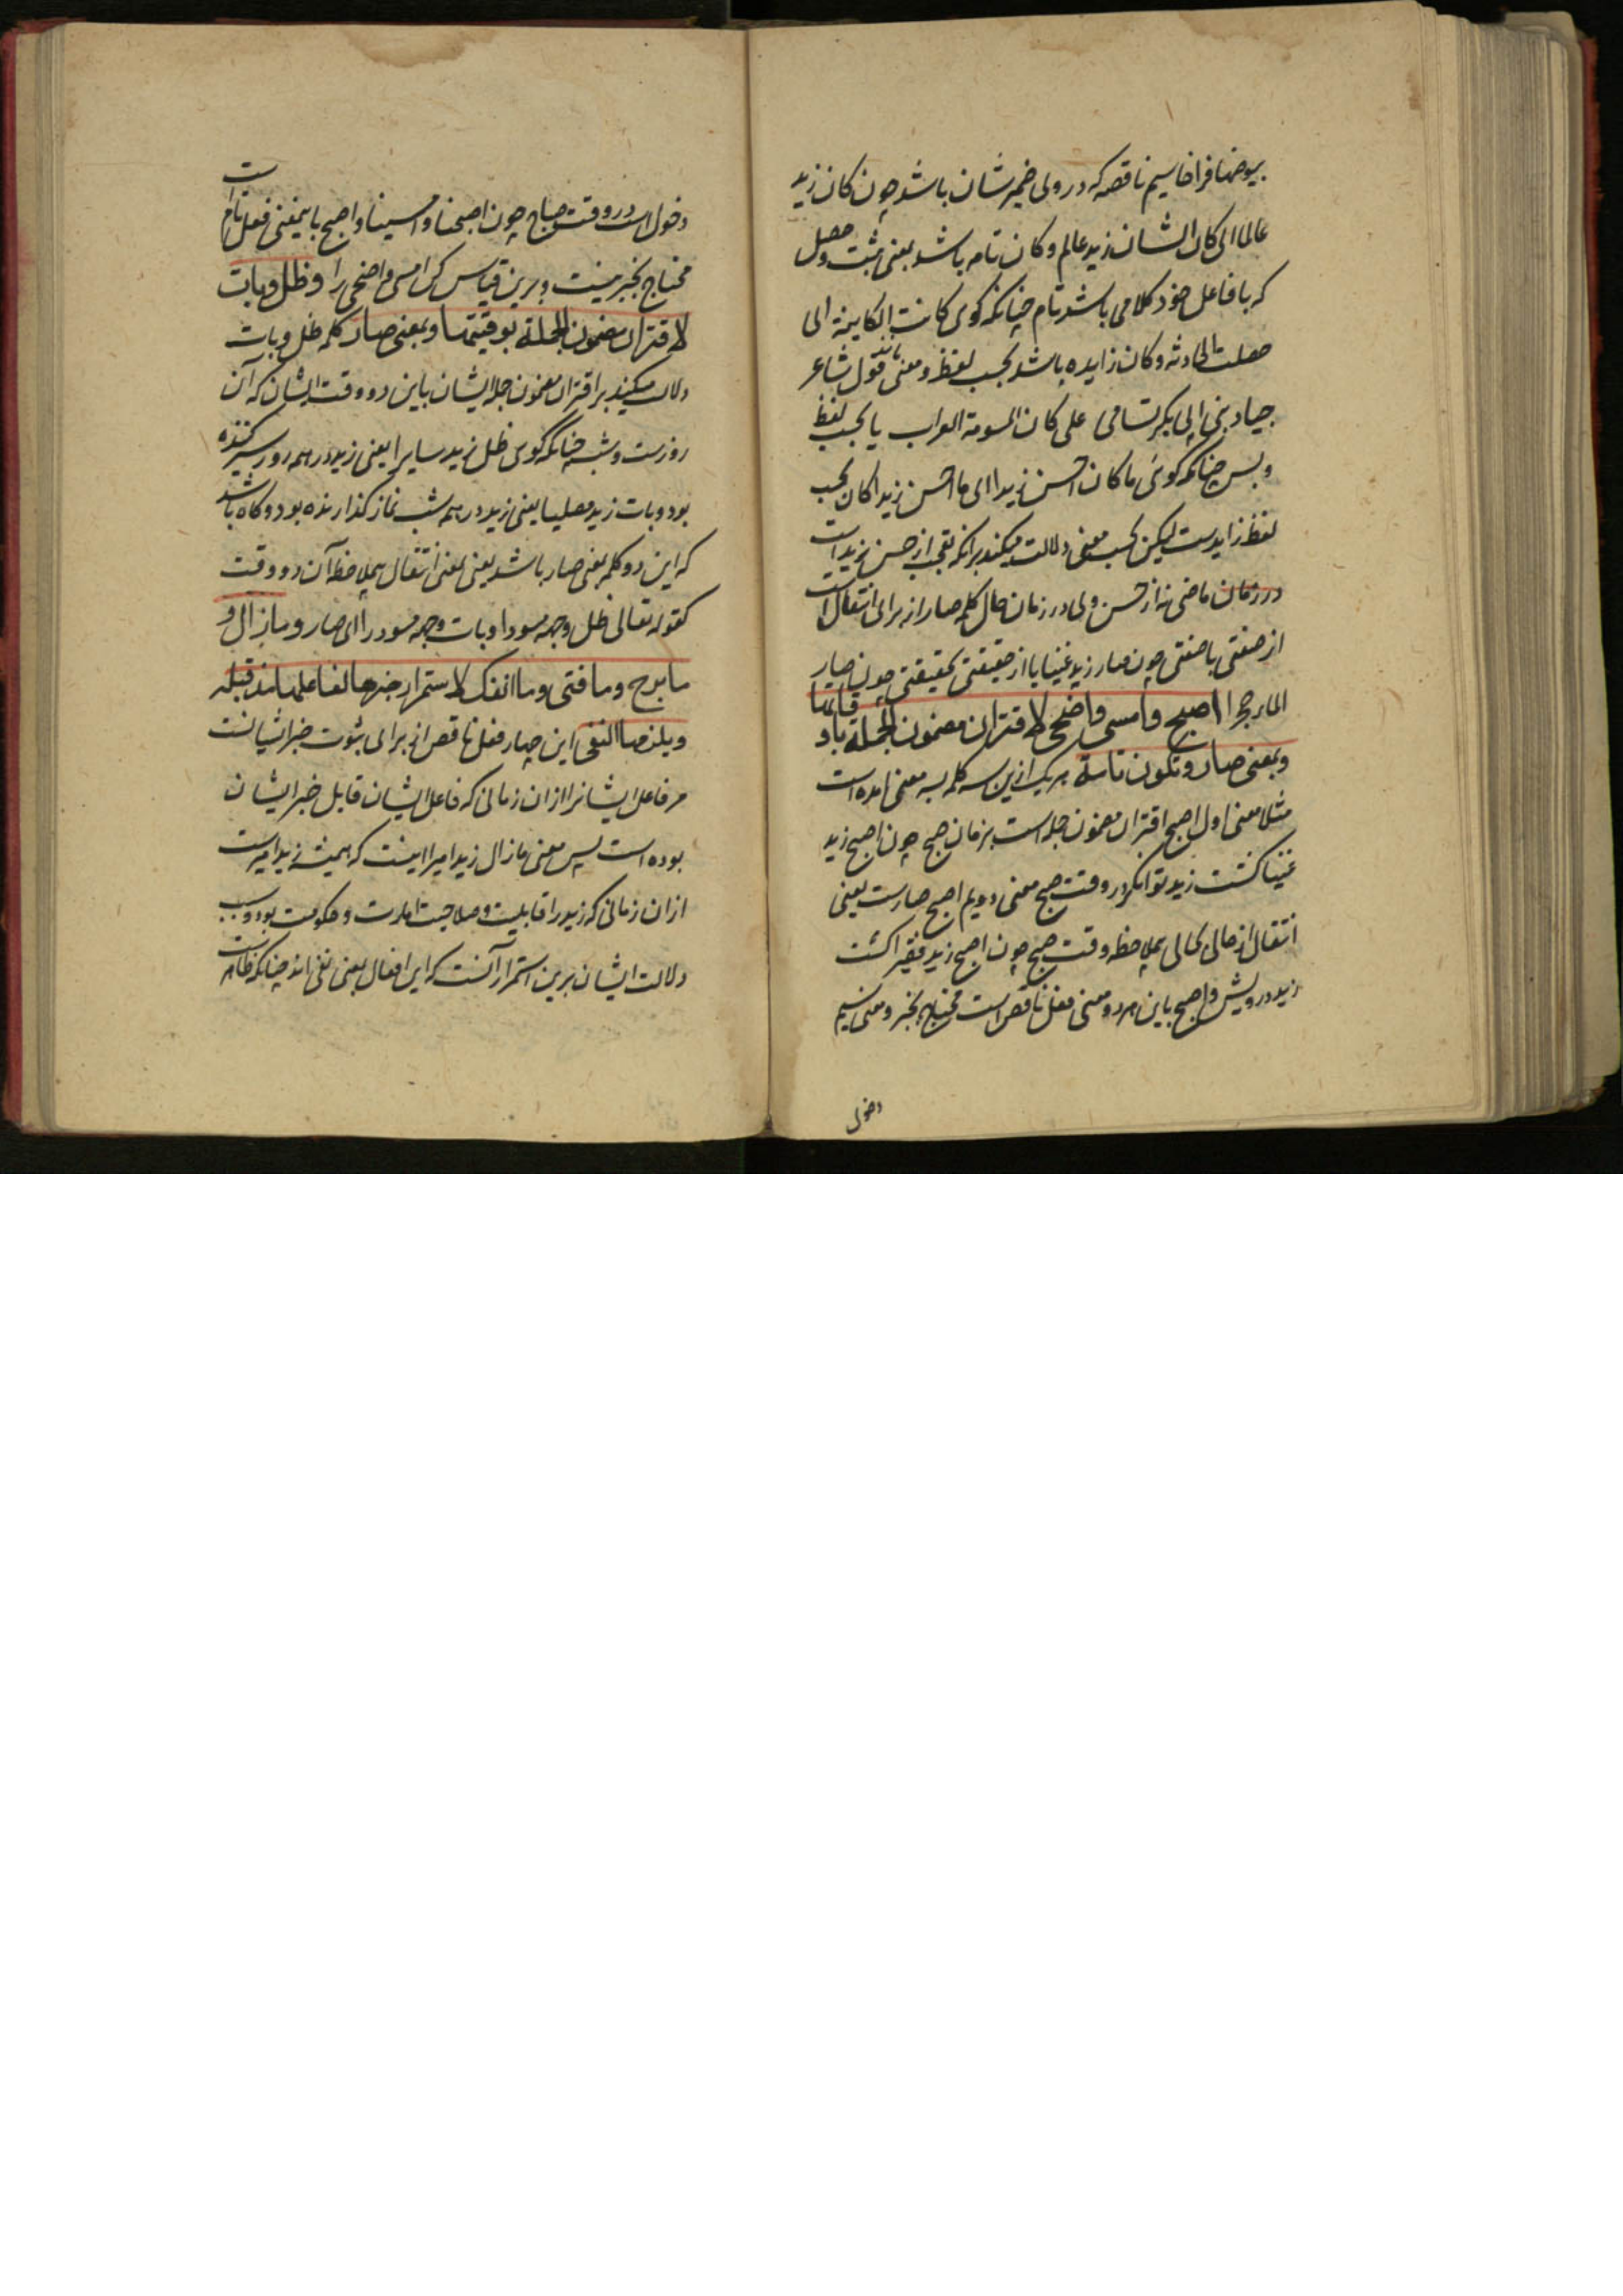 بیوضها فراخا سیم ناقصه که در وی ضمیر شان باشد چون کان زید
عالما ای کان الشان زید عالم و کان تامه باشد بمعنی ثبت و حصل
که با فاعل خود کلامی باشد تام چنانکه کوی کانت الکاینة ای
حصلت الحادثه و کان زایده باشد بحسب لفظ و معنی مانند قول شاعر
جیاد بنی ابی بکر تسامی علی کان المسومة العراب یا بحسب لفظ
و بس چنانکه کوئی ما کان احسن زیدا ای ما احسن زیدا کان بحسب
لفظ زایدست لیکن بحسب معنی دلالت میکند برانکه تعجب از حسن زید است
در زمان ماضی نه از حسن وی در زمان حال کلمه صار از برای انتقال است
از صفتی با صفتی چون صار زید غنیا یا از حقیقتی بحقیقتی چون صار
الماء حجرا اصبح وامسی واضحی لاقتران مضمون الجملة باوقاتها
وبمعنی صار وتکون تامة هر یک ازین سه کلمه بسه معنی امده است
مثلا معنی اول اصبح اقتران مضمون جمله است بزمان صبح چون اصبح زید
غنیا کشت زید توانکر در وقت صبح معنی دویم اصبح صارست یعنی
انتقال از حالی بحالی بملاحظه وقت صبح چون اصبح زید فقیرا کشت
زید درویش و اصبح باین هر دو معنی فعل ناقص است محتاج بخبر و معنی سیم
دخول
دخول است در وقت صباح چون اصبحنا و امسینا و اصبح باینمعنی فعل تام است
محتاج بخبر نیست و برین قیاس کن امسی و اضحی را وظل وبات
لاقتران مضمون الجملة بوقتیهما وبمعنی صار کلمه ظل و بات
دلالت میکنند بر اقتران مضمون جمله ایشان باین دو وقت ایشان که آن
روزست و شب چنانکه کوی ظل زید سایرا یعنی زید در همه روز سیر کننده
بود و بات زید مصلیا یعنی زید در همه شب نماز کذارنده بود و کاه باشد
که این دو کلمه بمعنی صار باشد یعنی بمعنی انتقال بی ملاحظه آن دو وقت
کقوله تعالی ظل وجهه مسودا و بات وجهه مسودا ای صار ومازال و
مابرح ومافتی وماانفک لاستمرار خبرها لفاعلها مذ قبله
ویلزمها النفی این چهار فعل ناقص از برای ثبوت خبر ایشانست
مر فاعل ایشانرا ازان زمانی که فاعل ایشان قابل خبر ایشان
بوده است پس معنی مازال زید امیرا اینست که همیشه زید امیرست
ازان زمانی که زید را قابلیت و صلاحیت امارت و حکومت بود و سبب
دلالت ایشان برین استمرار آنست که این افعال بمعنی نفی اند چنانکه ظاهرست